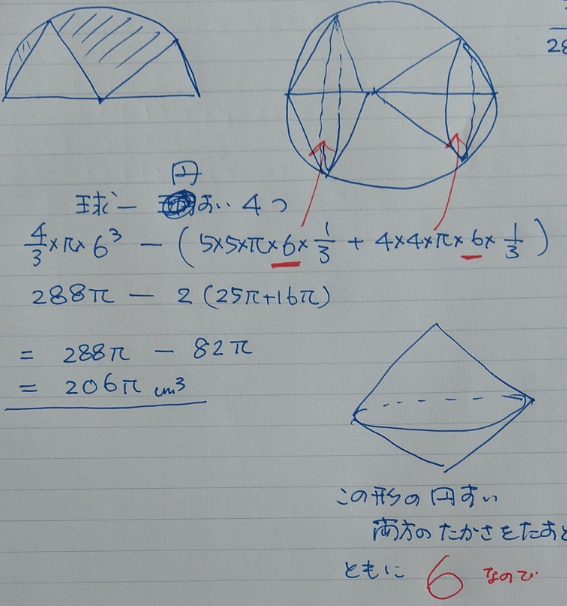 28
球ー円すい4つ
4/3×π×6³ − (5×5×π×6×1/3 + 4×4×π×6×1/3)
288π − 2(25π+16π)
= 288π − 82π
= 206π cm³
この形の円すい
両方のたかさをたすと
ともに 6 なので